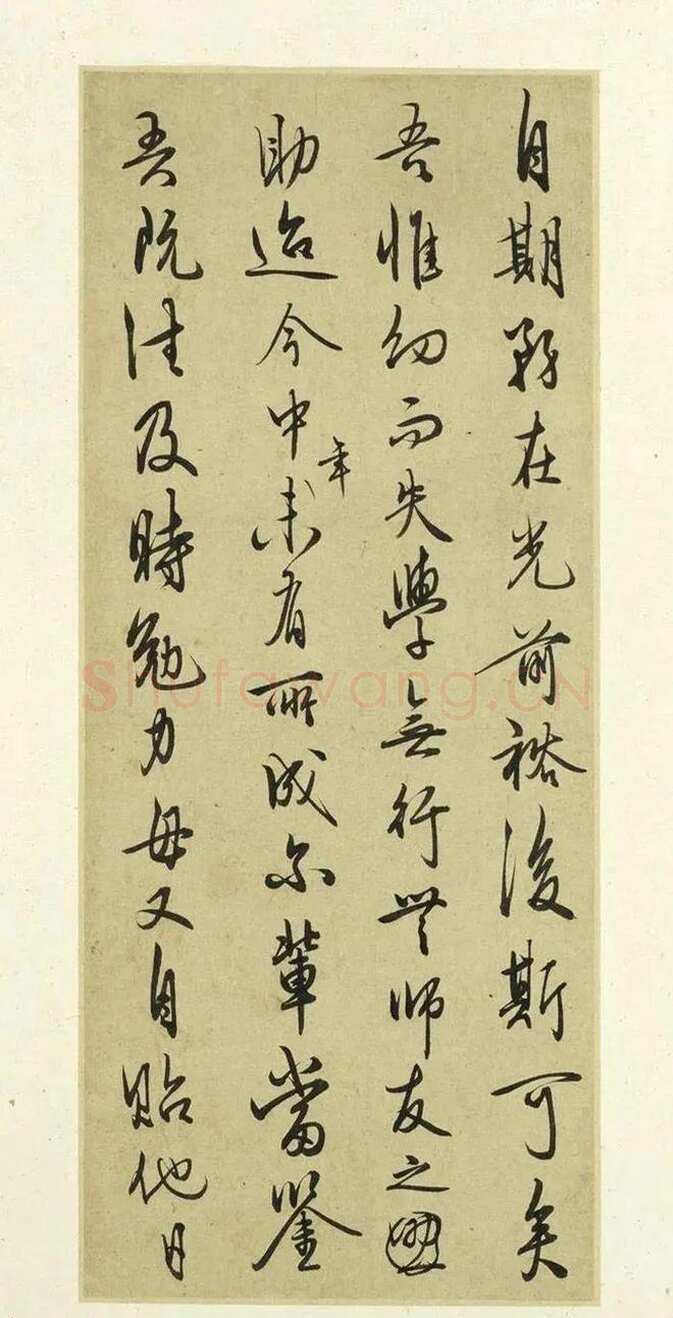 自期務在光前裕後斯可矣
吾惟幼而失學無行無師友之
助迨今中年未有所成尔輩當鑒
吾既往及時勉力毋又自貽他日
Shufawang.CN